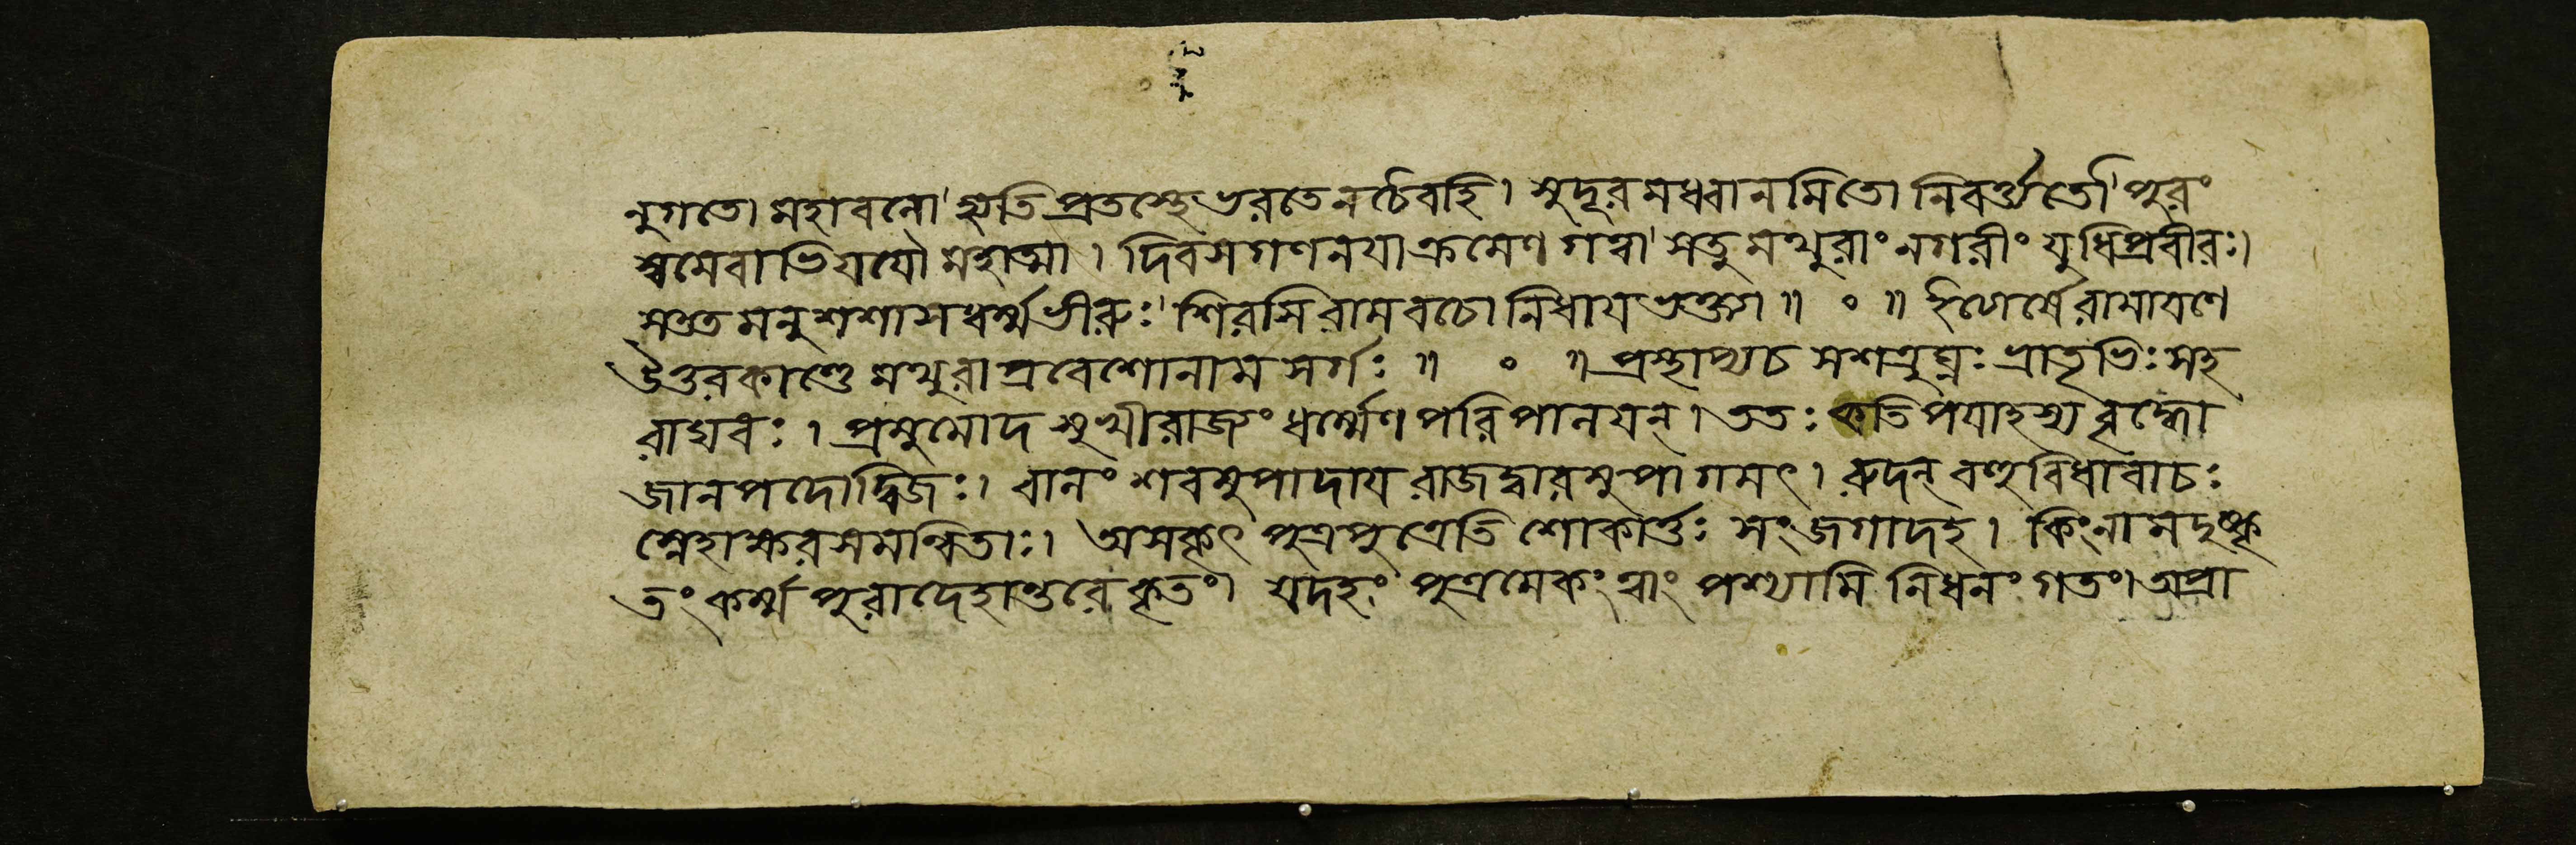 নুগতো মহাবনো' দ্যুতি প্রতস্থে ভরতেন চৈবহি। সুদূরমধ্বানমিতো নিবর্ত্ততো' পুরং
স্বমেবাভিযযৌ মহাত্মা। দিবসগণনযাক্রমেণ গত্বা' সতু মথুরাং নগরীং যুধিপ্রবীরঃ।
সততমনুশশাসধর্ম্মভীরুঃ' শিরসি রামবচো নিধায ভক্ত্যা॥ ॰ ॥ ইত্যার্ষেরামাযণে
উত্তরকাণ্ডে মথুরাপ্রবেশোনামসর্গঃ॥ ॰ ॥ প্রস্থাপ্যচ সশত্রুঘ্নং ভ্রাতৃভিঃ সহ
রাঘবঃ। প্রমুমোদ সুখীরাজ্যং ধর্ম্মেণ পরিপালযন্। ততঃ কতিপযাহস্য বৃদ্ধো
জানপদোদ্বিজঃ। বালং শবমুপাদায রাজদ্বারমুপাগমৎ। রুদন্ বহুবিধাবাচঃ
স্নেহাক্ষরসমন্বিতাঃ। অসকৃৎ পুত্রপুত্রেতি শোকার্ত্তঃ সংজগাদহ। কিংনামদুষ্কৃ
তং কর্ম্ম পুরাদেহান্তরে কৃতং। যদহং পুত্রমেকং ত্বাং পশ্যামি নিধনং গতং। অপ্রা